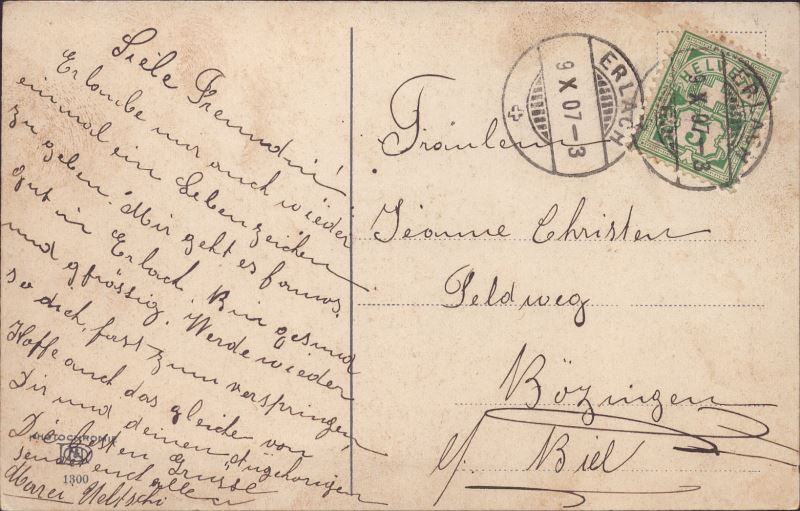 Liebe Freundin!
Erlaube mir auch wieder
einmal ein Lebenszeichen
zu geben. Mir geht es famos.
gut in Erlach. Bin gesund
und gfrässig. Werde wieder
so dick, fast zum verspringen,
Hoffe auch das gleiche von
Dir und deinen Angehörigen
Die besten Grüsse
sendet euch allen
Weltschi
PHOTOCHROMIE
1300
ERLACH
9 X 07-3
HELVETIA
5
ERLACH
9 X 07-3
Fräulein
Jéanne Christen
Feldweg
Bözingen
b/ Biel